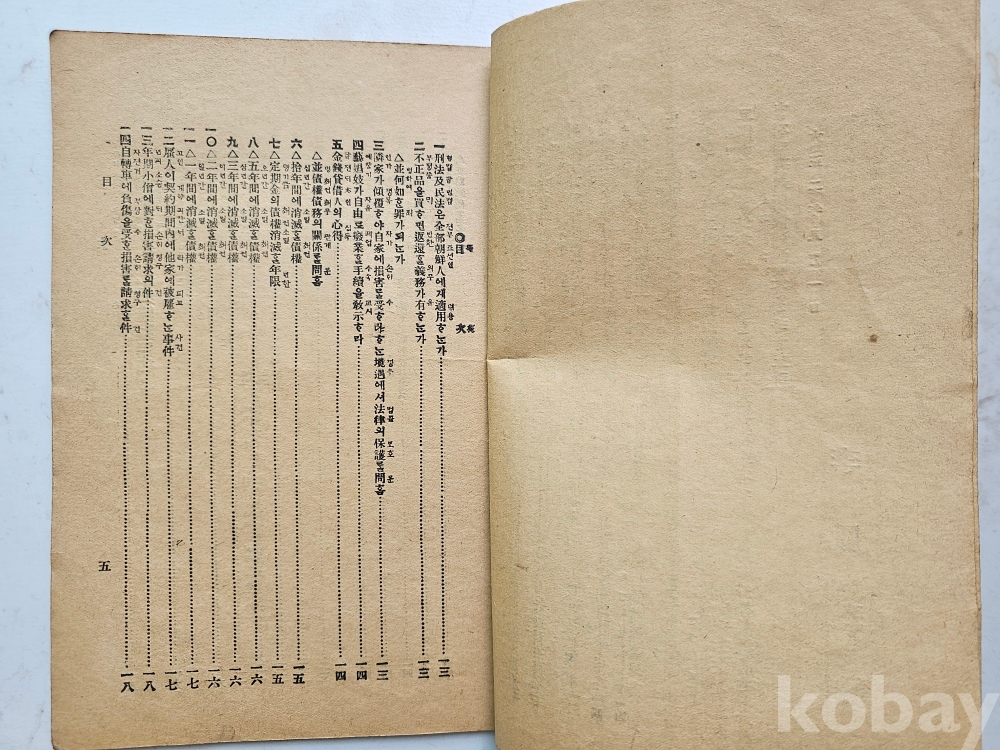 ◎目次
一 刑法及民法은全部朝鮮人에게適用ᄒᆞᄂᆞᆫ가 一三
二 不正品을買ᄒᆞ면返還ᄒᆞᆯ義務가有ᄒᆞᆫ가 一三
△並何如ᄒᆞᆫ罪가되ᄂᆞᆫ가
三 隣家가傾覆ᄒᆞ야自家에損害ᄅᆞᆯ受ᄒᆞ랴ᄒᆞᄂᆞᆫ境遇에셔法律의保護ᄅᆞᆯ問ᄒᆞᆷ 一三
四 藝娼妓가自由로廢業ᄒᆞᆯ手續을敎示ᄒᆞ라 一四
五 金錢貸借人의心得 一四
△並債權債務의關係ᄅᆞᆯ問ᄒᆞᆷ
六 △拾年間에消滅ᄒᆞᆯ債權 一五
七 △定期金의債權消滅ᄒᆞᆯ年限 一五
八 △五年間에消滅ᄒᆞᆯ債權 一六
九 △三年間에消滅ᄒᆞᆯ債權 一六
一〇 △二年間에消滅ᄒᆞᆯ債權 一六
一一 △一年間에消滅ᄒᆞᆯ債權 一七
一二 雇人이契約期間內에他家에被雇ᄒᆞᄂᆞᆫ事件 一七
一三 年期小僧에對ᄒᆞᆫ損害請求의件 一八
一四 自轉車에負傷을受ᄒᆞᆫ損害ᄅᆞᆯ請求ᄒᆞᆯ件 一八
目次
五
kobay